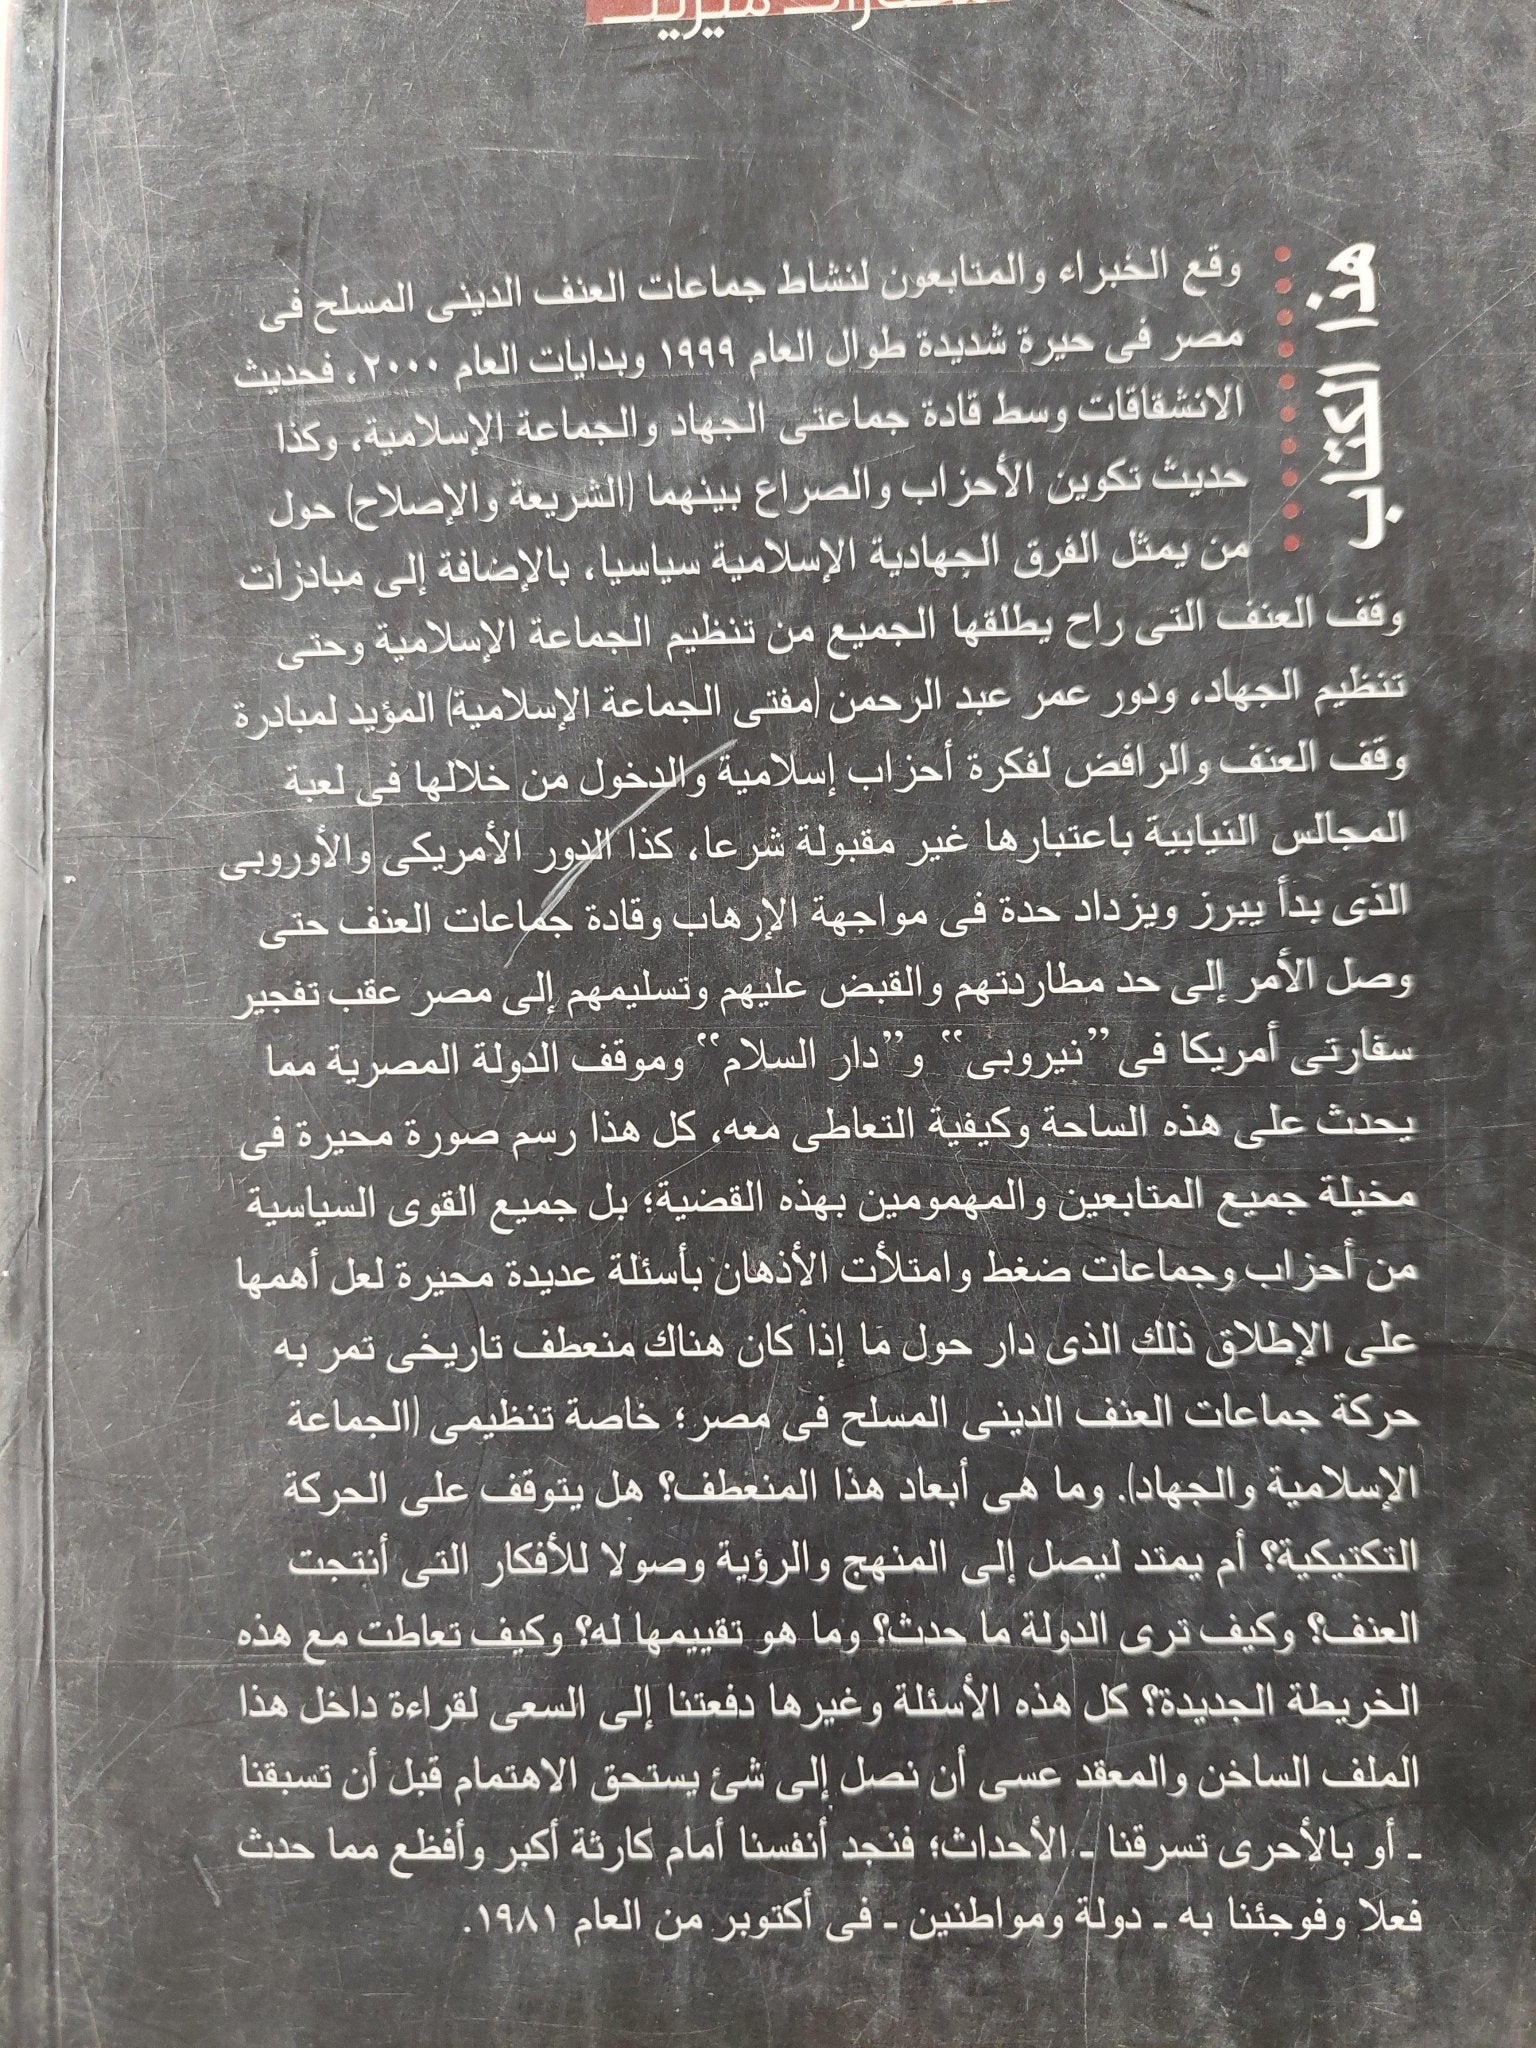 هذا الكتاب
وقع الخبراء والمتابعون لنشاط جماعات العنف الدينى المسلح فى
مصر فى حيرة شديدة طوال العام ١٩٩٩ وبدايات العام ٢٠٠٠، فحديث
الانشقاقات وسط قادة جماعتى الجهاد والجماعة الإسلامية، وكذا
حديث تكوين الأحزاب والصراع بينهما (الشريعة والإصلاح) حول
من يمثل الفرق الجهادية الإسلامية سياسيا، بالإضافة إلى مبادرات
وقف العنف التى راح يطلقها الجميع من تنظيم الجماعة الإسلامية وحتى
تنظيم الجهاد، ودور عمر عبد الرحمن (مفتى الجماعة الإسلامية) المؤيد لمبادرة
وقف العنف والرافض لفكرة أحزاب إسلامية والدخول من خلالها فى لعبة
المجالس النيابية باعتبارها غير مقبولة شرعا، كذا الدور الأمريكى والأوروبى
الذى بدأ يبرز ويزداد حدة فى مواجهة الإرهاب وقادة جماعات العنف حتى
وصل الأمر إلى حد مطاردتهم والقبض عليهم وتسليمهم إلى مصر عقب تفجير
سفارتى أمريكا فى ”نيروبى“ و”دار السلام“ وموقف الدولة المصرية مما
يحدث على هذه الساحة وكيفية التعاطى معه، كل هذا رسم صورة محيرة فى
مخيلة جميع المتابعين والمهمومين بهذه القضية؛ بل جميع القوى السياسية
من أحزاب وجماعات ضغط وامتلأت الأذهان بأسئلة عديدة محيرة لعل أهمها
على الإطلاق ذلك الذى دار حول ما إذا كان هناك منعطف تاريخى تمر به
حركة جماعات العنف الدينى المسلح فى مصر؛ خاصة تنظيمى (الجماعة
الإسلامية والجهاد). وما هى أبعاد هذا المنعطف؟ هل يتوقف على الحركة
التكتيكية؟ أم يمتد ليصل إلى المنهج والرؤية وصولا للأفكار التى أنتجت
العنف؟ وكيف ترى الدولة ما حدث؟ وما هو تقييمها له؟ وكيف تعاطت مع هذه
الخريطة الجديدة؟ كل هذه الأسئلة وغيرها دفعتنا إلى السعى لقراءة داخل هذا
الملف الساخن والمعقد عسى أن نصل إلى شئ يستحق الاهتمام قبل أن تسبقنا
ـ أو بالأحرى تسرقنا ـ الأحداث؛ فنجد أنفسنا أمام كارثة أكبر وأفظع مما حدث
فعلا وفوجئنا به ـ دولة ومواطنين ـ فى أكتوبر من العام ١٩٨١.